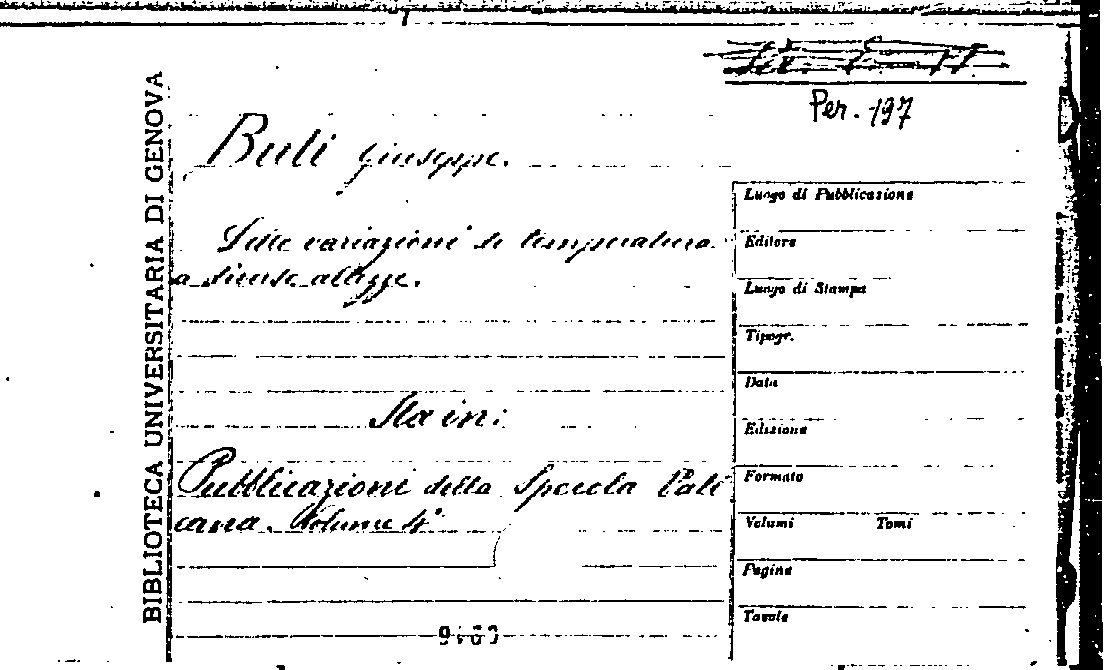 BIBLIOTECA UNIVERSITARIA DI GENOVA
Per. 197
Buti Giuseppe.
Delle variazioni di temperatura
a diverse altezze.
Sta in:
Pubblicazioni della Specola Vati
cana. Volume 4°
Luogo di Pubblicazione
Editore
Luogo di Stampa
Tipogr.
Data
Edizione
Formato
Volumi Tomi
Pagine
Tavole